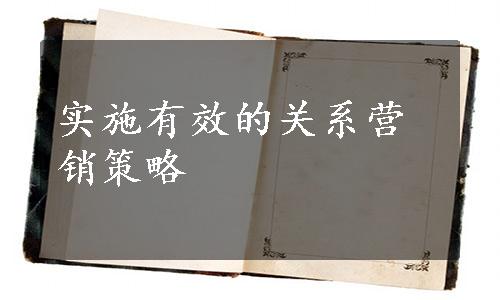 实施有效的关系营
销策略